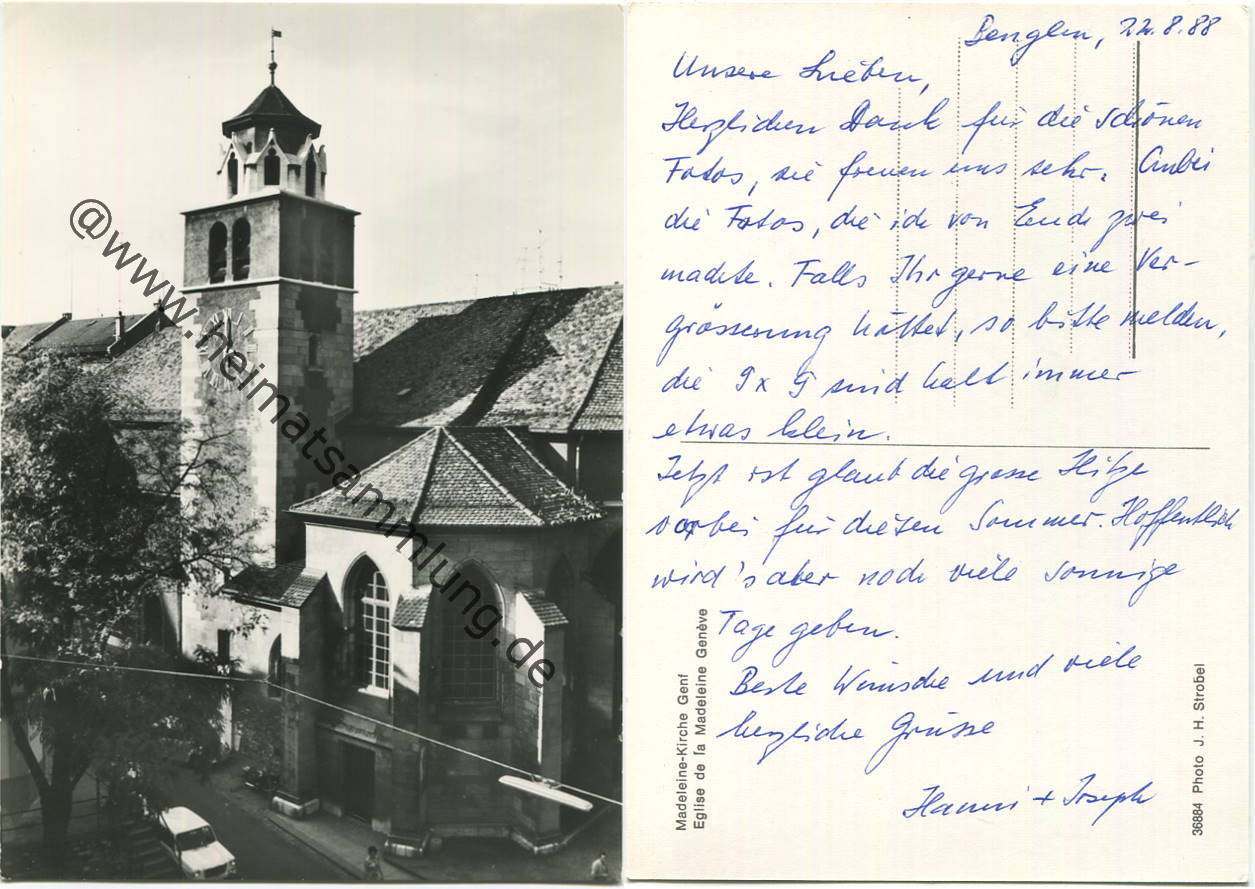 @www.heimatsammlung.de
Benglen, 22.8.88
Unsere Lieben,
Herzlichen Dank für die schönen
Fotos, sie freuen uns sehr. Anbei
die Fotos, die ich von Euch zwei
machte. Falls Ihr gerne eine Ver-
grösserung hättet, so bitte melden,
die 9x9 sind halt immer
etwas klein.
Jetzt ist glaub die grosse Hitze
vorbei für diesen Sommer. Hoffentlich
wird's aber noch viele sonnige
Tage geben.
Beste Wünsche und viele
herzliche Grüsse
Hanni + Joseph
Madeleine-Kirche Genf
Eglise de la Madeleine Genève
36884 Photo J. H. Strobel